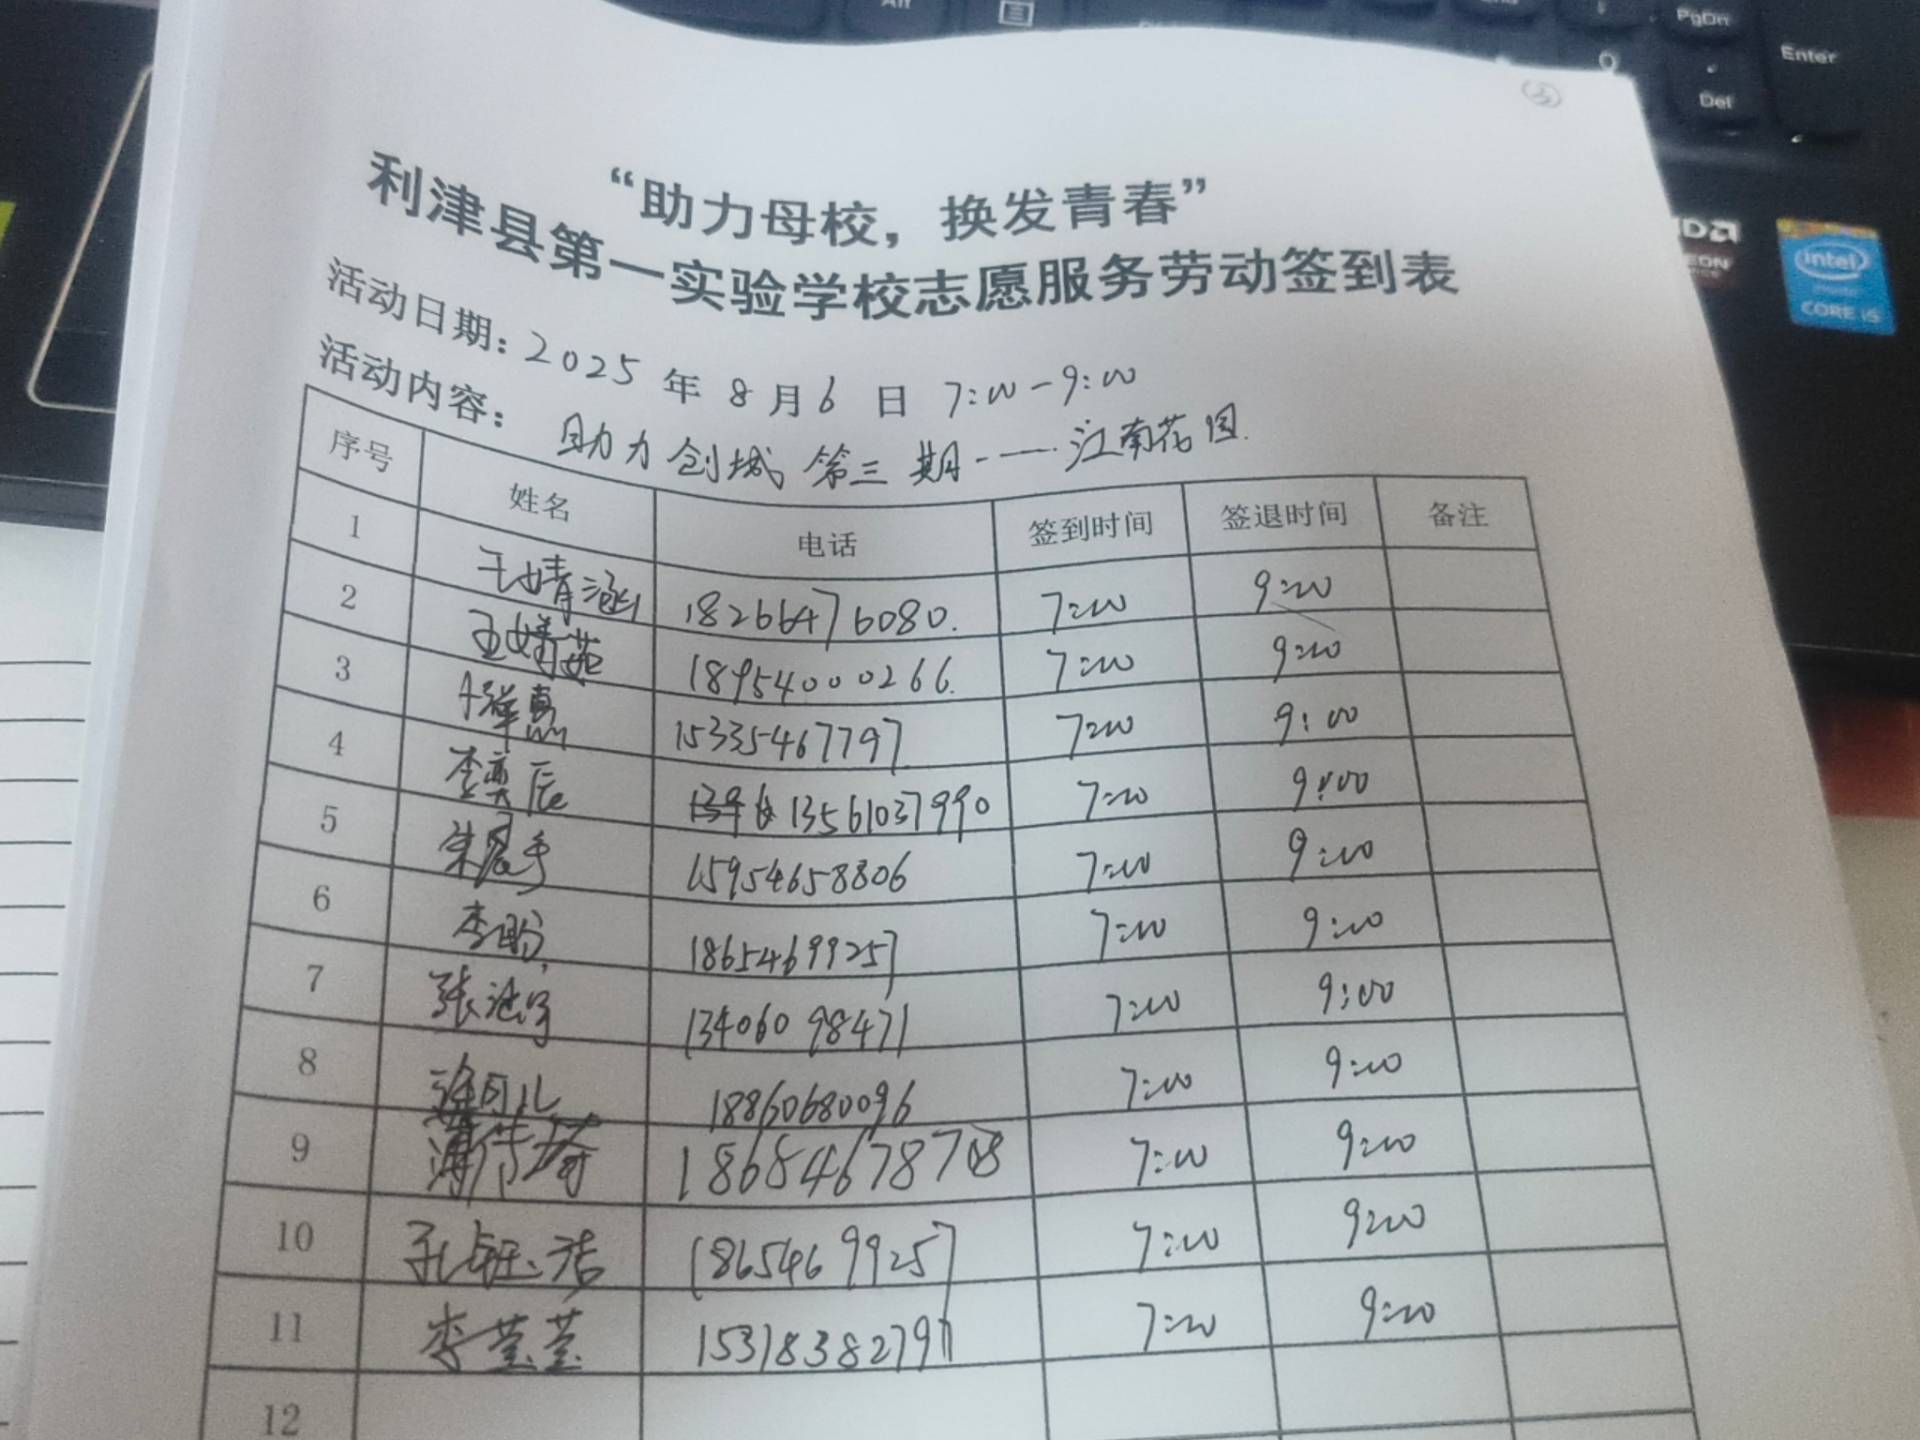 Alt
PgDn
Enter
Del
③
“助力母校，换发青春”
利津县第一实验学校志愿服务劳动签到表
活动日期：2025 年 8 月 6 日 7:00-9:00
活动内容： 助力创城第三期——江南花园.
序号 姓名 电话 签到时间 签退时间 备注
1 王婧涵 18266476080. 7:00 9:00
2 王婧茹 18954000266. 7:00 9:00
3 15335467797 7:00 9:00
4 李奕辰 13561037990 7:00 9:00
5 15954658806 7:00 9:00
6 李盼 18654699257 7:00 9:00
7 张 13406098471 7:00 9:00
8 许可儿 18860680096 7:00 9:00
9 1865467870 7:00 9:00
10 孔钰洁 18654699257 7:00 9:00
11 李莹莹 15318382797 7:00 9:00
12
intel
CORE i5